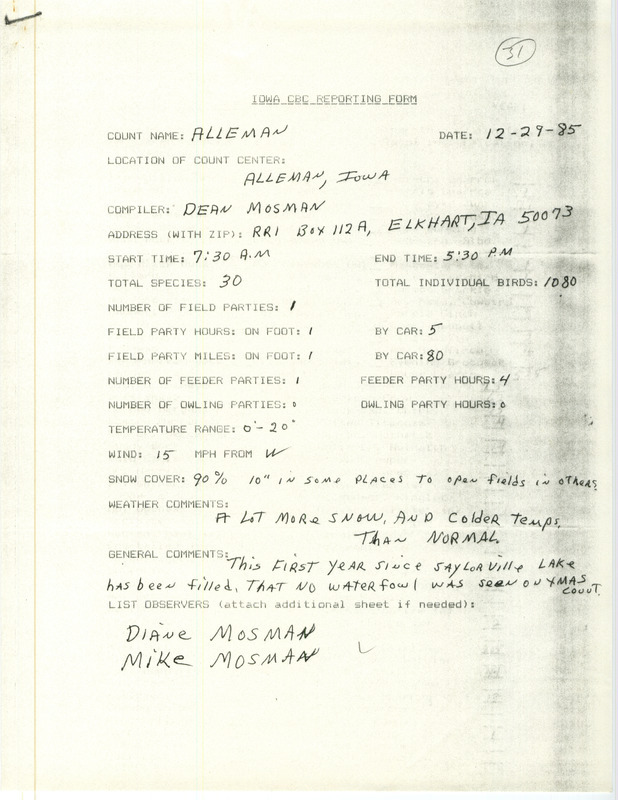 31
IOWA CBC REPORTING FORM
COUNT NAME: ALLEMAN DATE: 12-29-85
LOCATION OF COUNT CENTER:
ALLEMAN, IOWA
COMPILER: DEAN MOSMAN
ADDRESS (WITH ZIP): RR1 Box 112A, ELKHART, IA 50073
START TIME: 7:30 A.M END TIME: 5:30 P.M
TOTAL SPECIES: 30 TOTAL INDIVIDUAL BIRDS: 1080
NUMBER OF FIELD PARTIES: 1
FIELD PARTY HOURS: ON FOOT: 1 BY CAR: 5
FIELD PARTY MILES: ON FOOT: 1 BY CAR: 80
NUMBER OF FEEDER PARTIES: 1 FEEDER PARTY HOURS: 4
NUMBER OF OWLING PARTIES: 0 OWLING PARTY HOURS: 0
TEMPERATURE RANGE: 0° - 20°
WIND: 15 MPH FROM W
SNOW COVER: 90% 10" in some places to open fields in others.
WEATHER COMMENTS:
A LOT MORE SNOW, AND COLDER TEMPS.
THAN NORMAL.
GENERAL COMMENTS: This FIRST YEAR SINCE SAYLORVILLE LAKE
has been filled, THAT NO WATERFOWL WAS SEEN ON XMAS
COUNT.
LIST OBSERVERS (attach additional sheet if needed):
DIANE MOSMAN
MIKE MOSMAN